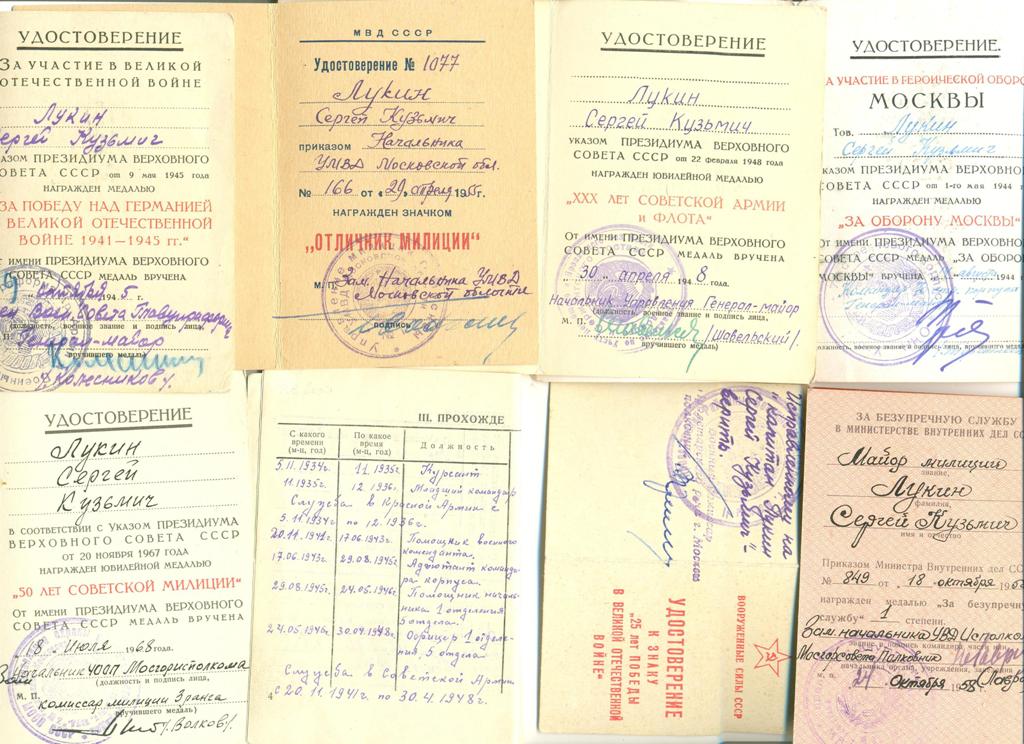 УДОСТОВЕРЕНИЕ
ЗА УЧАСТИЕ В ВЕЛИКОЙ
ОТЕЧЕСТВЕННОЙ ВОЙНЕ
Лукин
Сергей Кузьмич
УКАЗОМ ПРЕЗИДИУМА ВЕРХОВНОГО
СОВЕТА СССР от 9 мая 1945 года
НАГРАЖДЕН МЕДАЛЬЮ
„ЗА ПОБЕДУ НАД ГЕРМАНИЕЙ
В ВЕЛИКОЙ ОТЕЧЕСТВЕННОЙ
ВОЙНЕ 1941—1945 гг.“
От имени ПРЕЗИДИУМА ВЕРХОВНОГО
СОВЕТА СССР МЕДАЛЬ ВРУЧЕНА
9 октября 1945 г.
(должность, военное звание и подпись лица,
М. П. Генерал-майор
вручившего медаль)
/Колесников/.
МВД СССР
Удостоверение № 1077
Лукин
Сергей Кузьмич
приказом Начальника
УМВД Московской обл.
№ 166 от „29„ апреля 1955г.
НАГРАЖДЕН ЗНАЧКОМ
„ОТЛИЧНИК МИЛИЦИИ“
М. П. Зам. Начальника УМВД
Московской области
подпись
УДОСТОВЕРЕНИЕ
Лукин
Сергей Кузьмич
УКАЗОМ ПРЕЗИДИУМА ВЕРХОВНОГО
СОВЕТА СССР от 22 февраля 1948 года
НАГРАЖДЕН ЮБИЛЕЙНОЙ МЕДАЛЬЮ
„XXX ЛЕТ СОВЕТСКОЙ АРМИИ
И ФЛОТА“
От имени ПРЕЗИДИУМА ВЕРХОВНОГО
СОВЕТА СССР МЕДАЛЬ ВРУЧЕНА
30 апреля 1948 г.
Начальник Управления Генерал-майор
(должность, военное звание и подпись лица,
М. П. /Шавельский/
вручившего медаль)
УДОСТОВЕРЕНИЕ.
ЗА УЧАСТИЕ В ГЕРОИЧЕСКОЙ ОБОРО
МОСКВЫ
Тов. Лукин
Сергей Кузьмич
УКАЗОМ ПРЕЗИДИУМА ВЕРХОВНОГО
СОВЕТА СССР от 1-го мая 1944 г
НАГРАЖДЕН МЕДАЛЬЮ
„ЗА ОБОРОНУ МОСКВЫ“
От имени ПРЕЗИДИУМА ВЕРХОВНОГО
СОВЕТА СССР МЕДАЛЬ „ЗА ОБОРО
МОСКВЫ“ ВРУЧЕНА августа 1944
должность, военное звание и подпись лица, вручившего медал
УДОСТОВЕРЕНИЕ
Лукин
Сергей
Кузьмич
В СООТВЕТСТВИИ С УКАЗОМ ПРЕЗИДИУМА
ВЕРХОВНОГО СОВЕТА СССР
ОТ 20 НОЯБРЯ 1967 ГОДА
НАГРАЖДЕН ЮБИЛЕЙНОЙ МЕДАЛЬЮ
„50 ЛЕТ СОВЕТСКОЙ МИЛИЦИИ“
От имени ПРЕЗИДИУМА ВЕРХОВНОГО
СОВЕТА СССР МЕДАЛЬ ВРУЧЕНА
8 июля 1968 года.
Начальник УООП Мосгорисполкома
(должность и подпись лица,
М. П. комиссар милиции 3 ранга
вручившего медаль)
/Волков/.
III. ПРОХОЖДЕ
С какого времени (м-ц, год) По какое время (м-ц, год) Должность
5.11.1934г. 11.1935г. Курсант
11.1935г. 12.1936г. Младший командир
Служба в Красной Армии с
5.11.1934г по 12.1936г.
20.11.1941г. 17.06.1943г. Помощник военного
коменданта.
17.06.1943г. 29.08.1945г. Адъютант команди-
ра корпуса.
29.08.1945г. 24.05.1946г. Помощник началь-
ника 1 отделения
5 отдела.
24.05.1946г. 30.04.1948г. Офицер 1 отделе-
ния, 5 отдела
Служба в Советской Армии
с 20.11.1941г. по 30.4.1948г.
4
Исправленному на
"капитан Лукин
Сергей Кузьмич" -
верить.
ВООРУЖЕННЫЕ СИЛЫ СССР
УДОСТОВЕРЕНИЕ
К ЗНАКУ
"25 ЛЕТ ПОБЕДЫ
В ВЕЛИКОЙ ОТЕЧЕСТВЕННОЙ
ВОЙНЕ"
ЗА БЕЗУПРЕЧНУЮ СЛУЖБУ
В МИНИСТЕРСТВЕ ВНУТРЕННИХ ДЕЛ СС
Майор милиции
звание,
Лукин
фамилия,
Сергей Кузьмич
имя и отчество
Приказом Министра Внутренних Дел СС
№ 849 от „18 октября 195
награжден медалью „За безупречн
службу“ 1 степени.
Зам. начальника УВД Исполко
Мосгорсовета Полковник
24 октября 1958